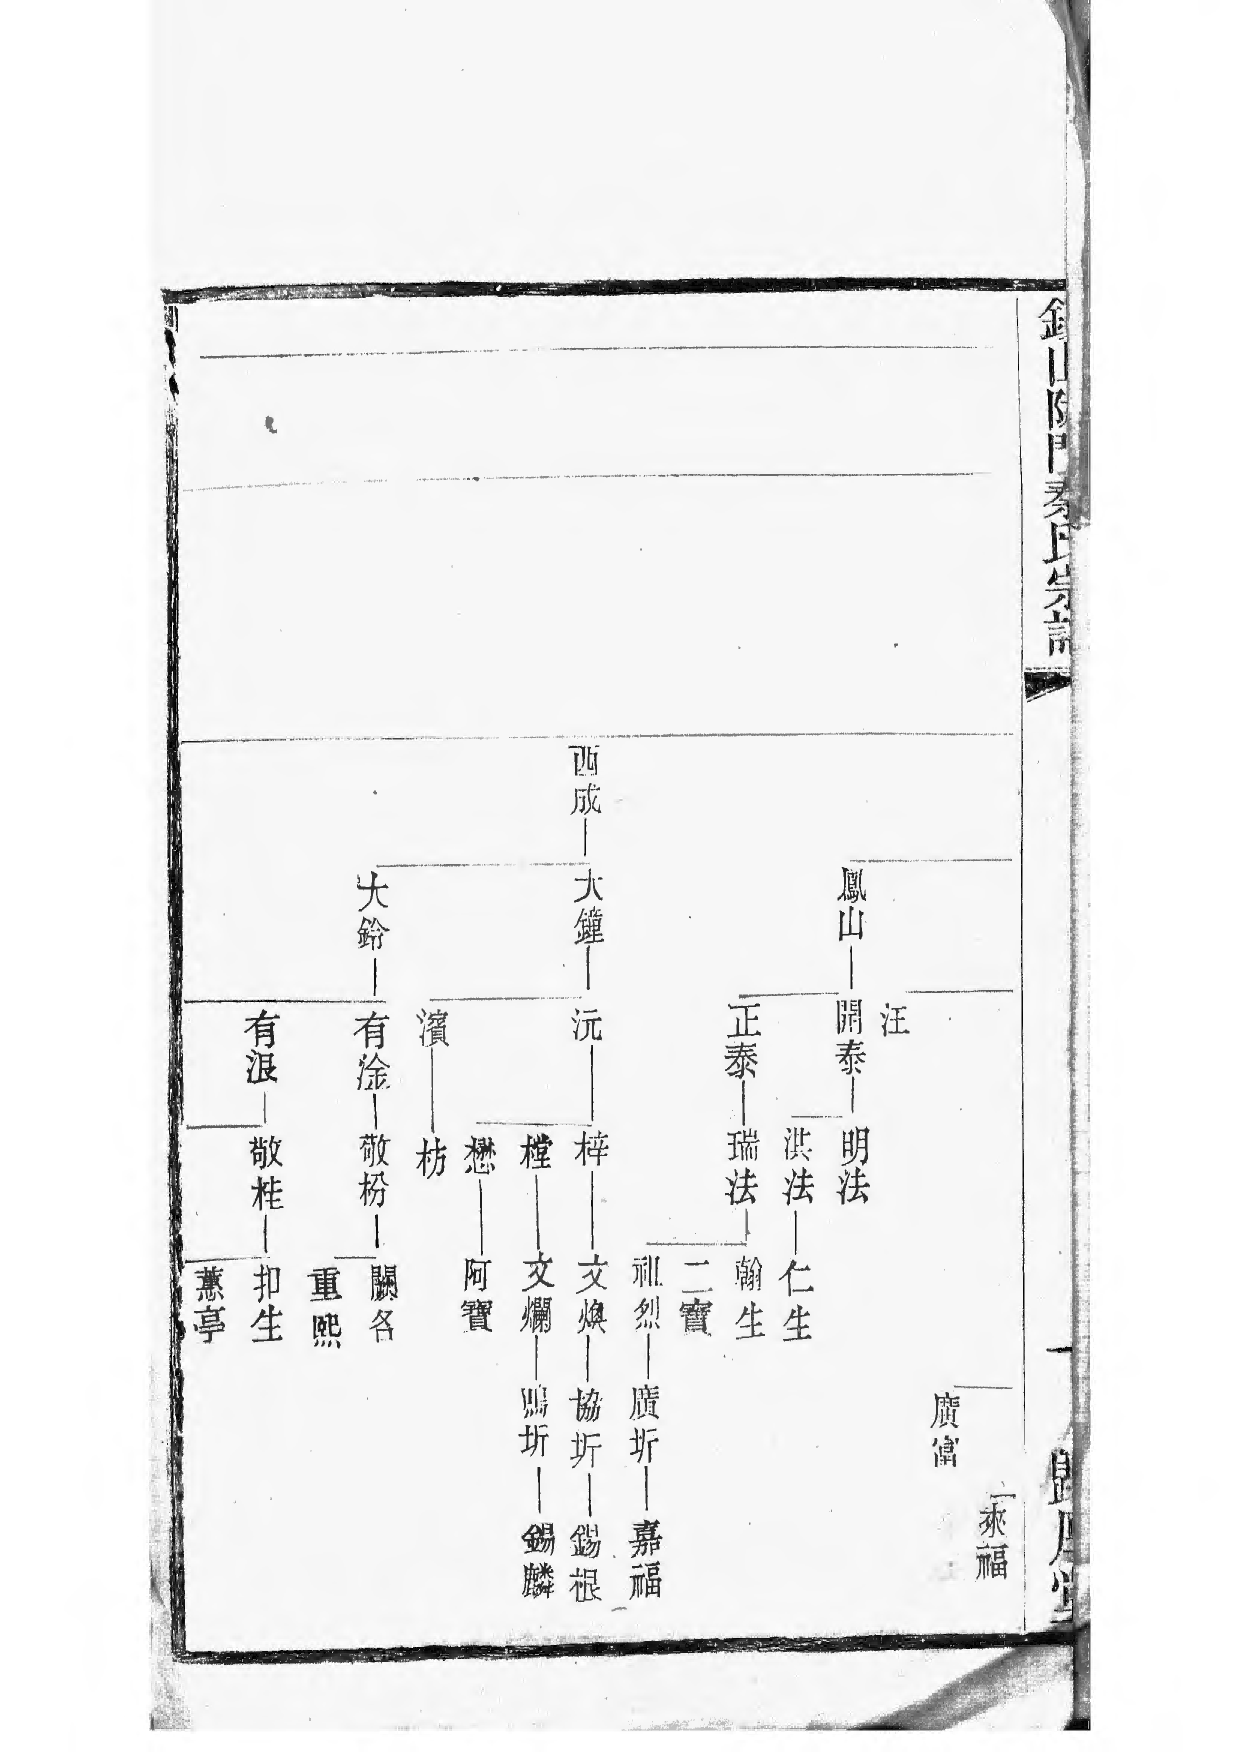 山陡門秦氏宗譜
一
歸厚堂
來福
廣富
汪
鳳山 開泰 明法
洪法 仁生
正泰 瑞法 翰生
二寶
祖烈 廣圻 嘉福
西成 大鐘 沅 梓 文煥 協圻 錫根
樘 文斕 鳴圻 錫麟
懋 阿寶
濱 枋
大鈴 有淦 敬枌 闕名
重熙
有浪 敬桂 扣生
蕙亭